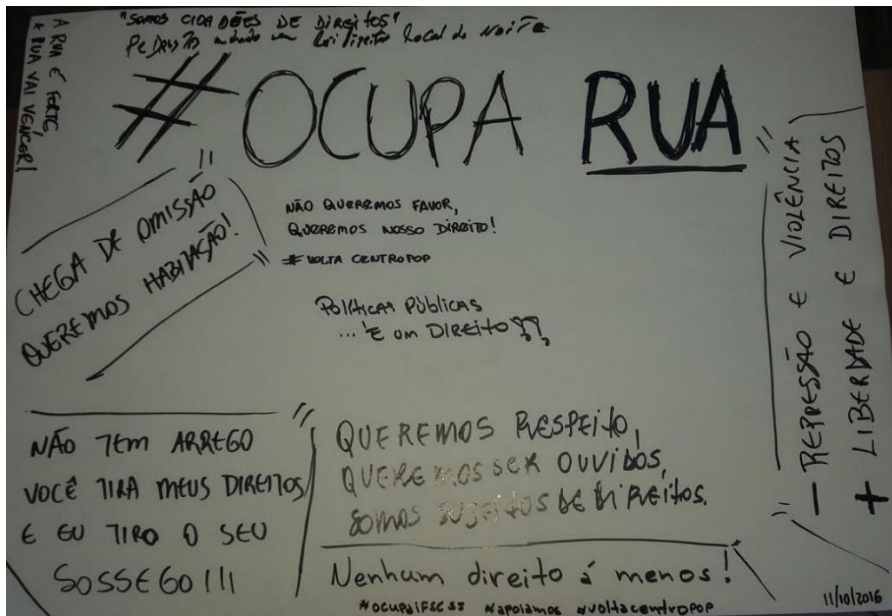 A RUA É FORTE,
A RUA VAI VENCER!
"SOMOS CIDADÕES DE DIREITOS"
local do NOITE
#OCUPA RUA
CHEGA DE OMISSÃO
QUEREMOS HABITAÇÃO!
NÃO QUEREMOS FAVOR,
QUEREMOS NOSSO DIREITO!
# VOLTA CENTROPOP
POLÍTICAS PÚBLICAS
... É UM DIREITO!!
- REPRESSÃO E VIOLÊNCIA
+ LIBERDADE E DIREITOS
NÃO TEM ARREGO
VOCÊ TIRA MEUS DIREITOS
E EU TIRO O SEU
SOSSEGO!!!
QUEREMOS RESPEITO,
QUEREMOS SER OUVIDOS,
SOMOS SUJEITOS DE DIREITOS.
Nenhum direito á menos!
#OCUPAIFSCSJ #APOIAMOS #VOLTACENTROPOP
11/10/2016